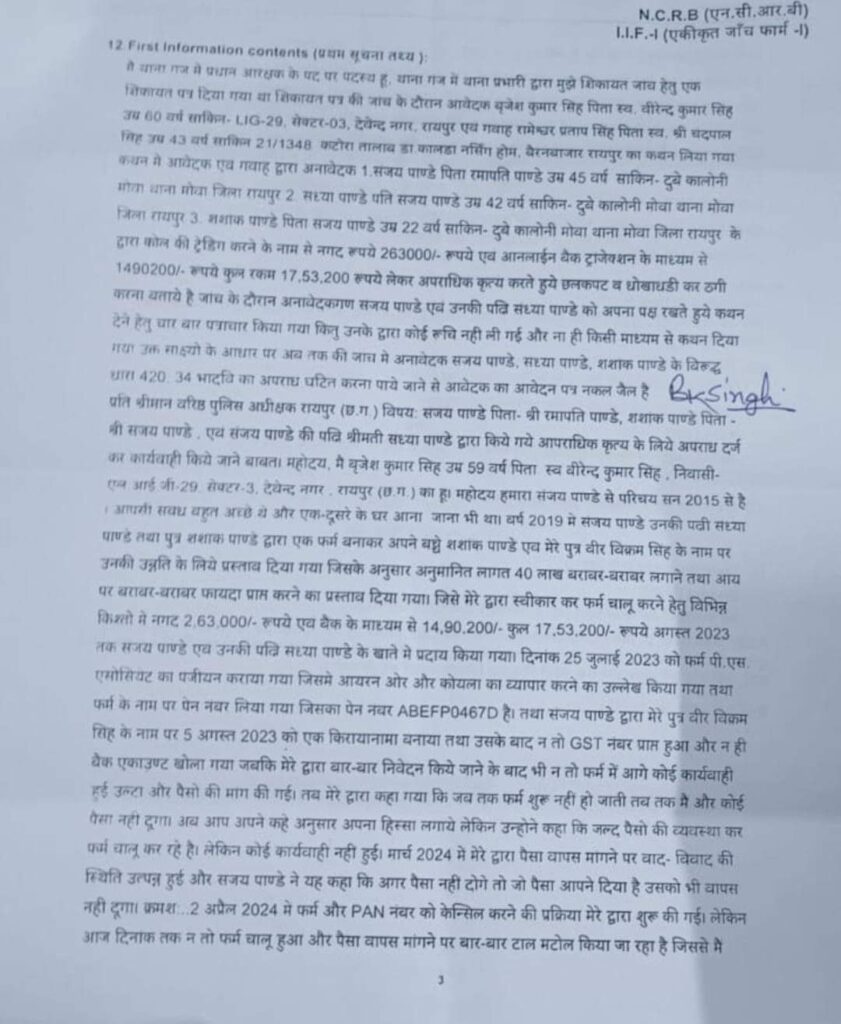 N.C.R.B (एन.सी.आर.बी)
I.I.F.-I (एकीकृत जाँच फार्म -I)
12. First Information contents (प्रथम सूचना तथ्य ):
मै थाना गंज में प्रधान आरक्षक के पद पर पदस्थ हू, थाना गंज में थाना प्रभारी द्वारा मुझे शिकायत जांच हेतु एक
शिकायत पत्र दिया गया था शिकायत पत्र की जांच के दौरान आवेदक बृजेश कुमार सिंह पिता स्व. वीरेन्द कुमार सिंह
उम्र 60 वर्ष साकिन- LIG-29, सेक्टर-03, देवेन्द नगर, रायपुर एवं गवाह रामेश्वर प्रताप सिंह पिता स्व. श्री चदपाल
सिंह उम्र 43 वर्ष साकिन 21/1348 कटोरा तालाब डा.कालडा नर्सिंग होम, बैरनबाजार रायपुर का कथन लिया गया
कथन में आवेदक एवं गवाह द्वारा अनावेदक 1.संजय पाण्डे पिता रमापति पाण्डे उम्र 45 वर्ष साकिन- दुबे कालोनी
मोवा थाना मोवा जिला रायपुर 2. सध्या पाण्डे पति सजय पाण्डे उम्र 42 वर्ष साकिन- दुबे कालोनी मोवा थाना मोवा
जिला रायपुर 3. शशाक पाण्डे पिता सजय पाण्डे उम्र 22 वर्ष साकिन- दुबे कालोनी मोवा थाना मोवा जिला रायपुर के
द्वारा कोल की ट्रेडिंग करने के नाम से नगद रूपये 263000/- रूपये एवं आनलाईन बैंक ट्राजेक्शन के माध्यम से
1490200/- रूपये कुल रकम 17,53,200 रूपये लेकर अपराधिक कृत्य करते हुये छलकपट व धोखाधडी कर ठगी
करना बताये है जांच के दौरान अनावेदकगण सजय पाण्डे एवं उनकी पत्नि सध्या पाण्डे को अपना पक्ष रखते हुये कथन
देने हेतु चार बार पत्राचार किया गया कितु उनके द्वारा कोई रूचि नही ली गई और ना ही किसी माध्यम से कथन दिया
गया उक्त साक्ष्यो के आधार पर अब तक की जांच मे अनावेदक सजय पाण्डे, सध्या पाण्डे, शशाक पाण्डे के विरूद्ध
धारा 420, 34 भादवि का अपराध घटित करना पाये जाने से आवेदक का आवेदन पत्र नकल जैल है BKSingh
प्रति श्रीमान वरिष्ठ पुलिस अधीक्षक रायपुर (छ.ग.) विषय: सजय पाण्डे पिता- श्री रमापति पाण्डे, शशाक पाण्डे पिता -
श्री सजय पाण्डे , एवं संजय पाण्डे की पत्नि श्रीमती सध्या पाण्डे द्वारा किये गये आपराधिक कृत्य के लिये अपराध दर्ज
कर कार्यवाही किये जाने बाबत। महोदय, मै बृजेश कुमार सिंह उम्र 59 वर्ष पिता स्व वीरेन्द कुमार सिंह , निवासी-
एल आई जी-29, सेक्टर-3, देवेन्द नगर , रायपुर (छ.ग.) का हू। महोदय हमारा संजय पाण्डे से परिचय सन 2015 से है
। आपसी सबध बहुत अच्छे थे और एक-दूसरे के घर आना जाना भी था। वर्ष 2019 मे सजय पाण्डे उनकी पत्नी सध्या
पाण्डे तथा पुत्र शशाक पाण्डे द्वारा एक फर्म बनाकर अपने बच्चे शशाक पाण्डे एव मेरे पुत्र वीर विक्रम सिंह के नाम पर
उनकी उन्नति के लिये प्रस्ताव दिया गया जिसके अनुसार अनुमानित लागत 40 लाख बराबर-बराबर लगाने तथा आय
पर बराबर-बराबर फायदा प्राप्त करने का प्रस्ताव दिया गया। जिसे मेरे द्वारा स्वीकार कर फर्म चालू करने हेतु विभिन्न
किश्तो मे नगद 2,63,000/- रूपये एवं बैक के माध्यम से 14,90,200/- कुल 17,53,200/- रूपये अगस्त 2023
तक सजय पाण्डे एवं उनकी पत्नि सध्या पाण्डे के खाते मे प्रदाय किया गया। दिनाक 25 जुलाई 2023 को फर्म पी.एस.
एसोसियट का पजीयन कराया गया जिसमे आयरन ओर और कोयला का व्यापार करने का उल्लेख किया गया तथा
फर्म के नाम पर पेन नबर लिया गया जिसका पेन नवर ABEFP0467D है। तथा संजय पाण्डे द्वारा मेरे पुत्र वीर विक्रम
सिंह के नाम पर 5 अगस्त 2023 को एक किरायानामा बनाया तथा उसके बाद न तो GST नंबर प्राप्त हुआ और न ही
बैक एकाउण्ट खोला गया जबकि मेरे द्वारा बार-बार निवेदन किये जाने के बाद भी न तो फर्म में आगे कोई कार्यवाही
हुई उल्टा और पैसो की मांग की गई। तब मेरे द्वारा कहा गया कि जब तक फर्म शुरू नहीं हो जाती तब तक मै और कोई
पैसा नही दूगा। अब आप अपने कहे अनुसार अपना हिस्सा लगाये लेकिन उन्होने कहा कि जल्द पैसो की व्यवस्था कर
फर्म चालू कर रहे है। लेकिन कोई कार्यवाही नही हुई। मार्च 2024 मे मेरे द्वारा पैसा वापस मांगने पर वाद- विवाद की
स्थिति उत्पन्न हुई और सजय पाण्डे ने यह कहा कि अगर पैसा नहीं दोगे तो जो पैसा आपने दिया है उसको भी वापस
नही दूगा। क्रमश:..2 अप्रैल 2024 मे फर्म और PAN नंबर को केन्सिल करने की प्रक्रिया मेरे द्वारा शुरू की गई। लेकिन
आज दिनांक तक न तो फर्म चालू हुआ और पैसा वापस मांगने पर बार-बार टाल मटोल किया जा रहा है जिससे मै
3